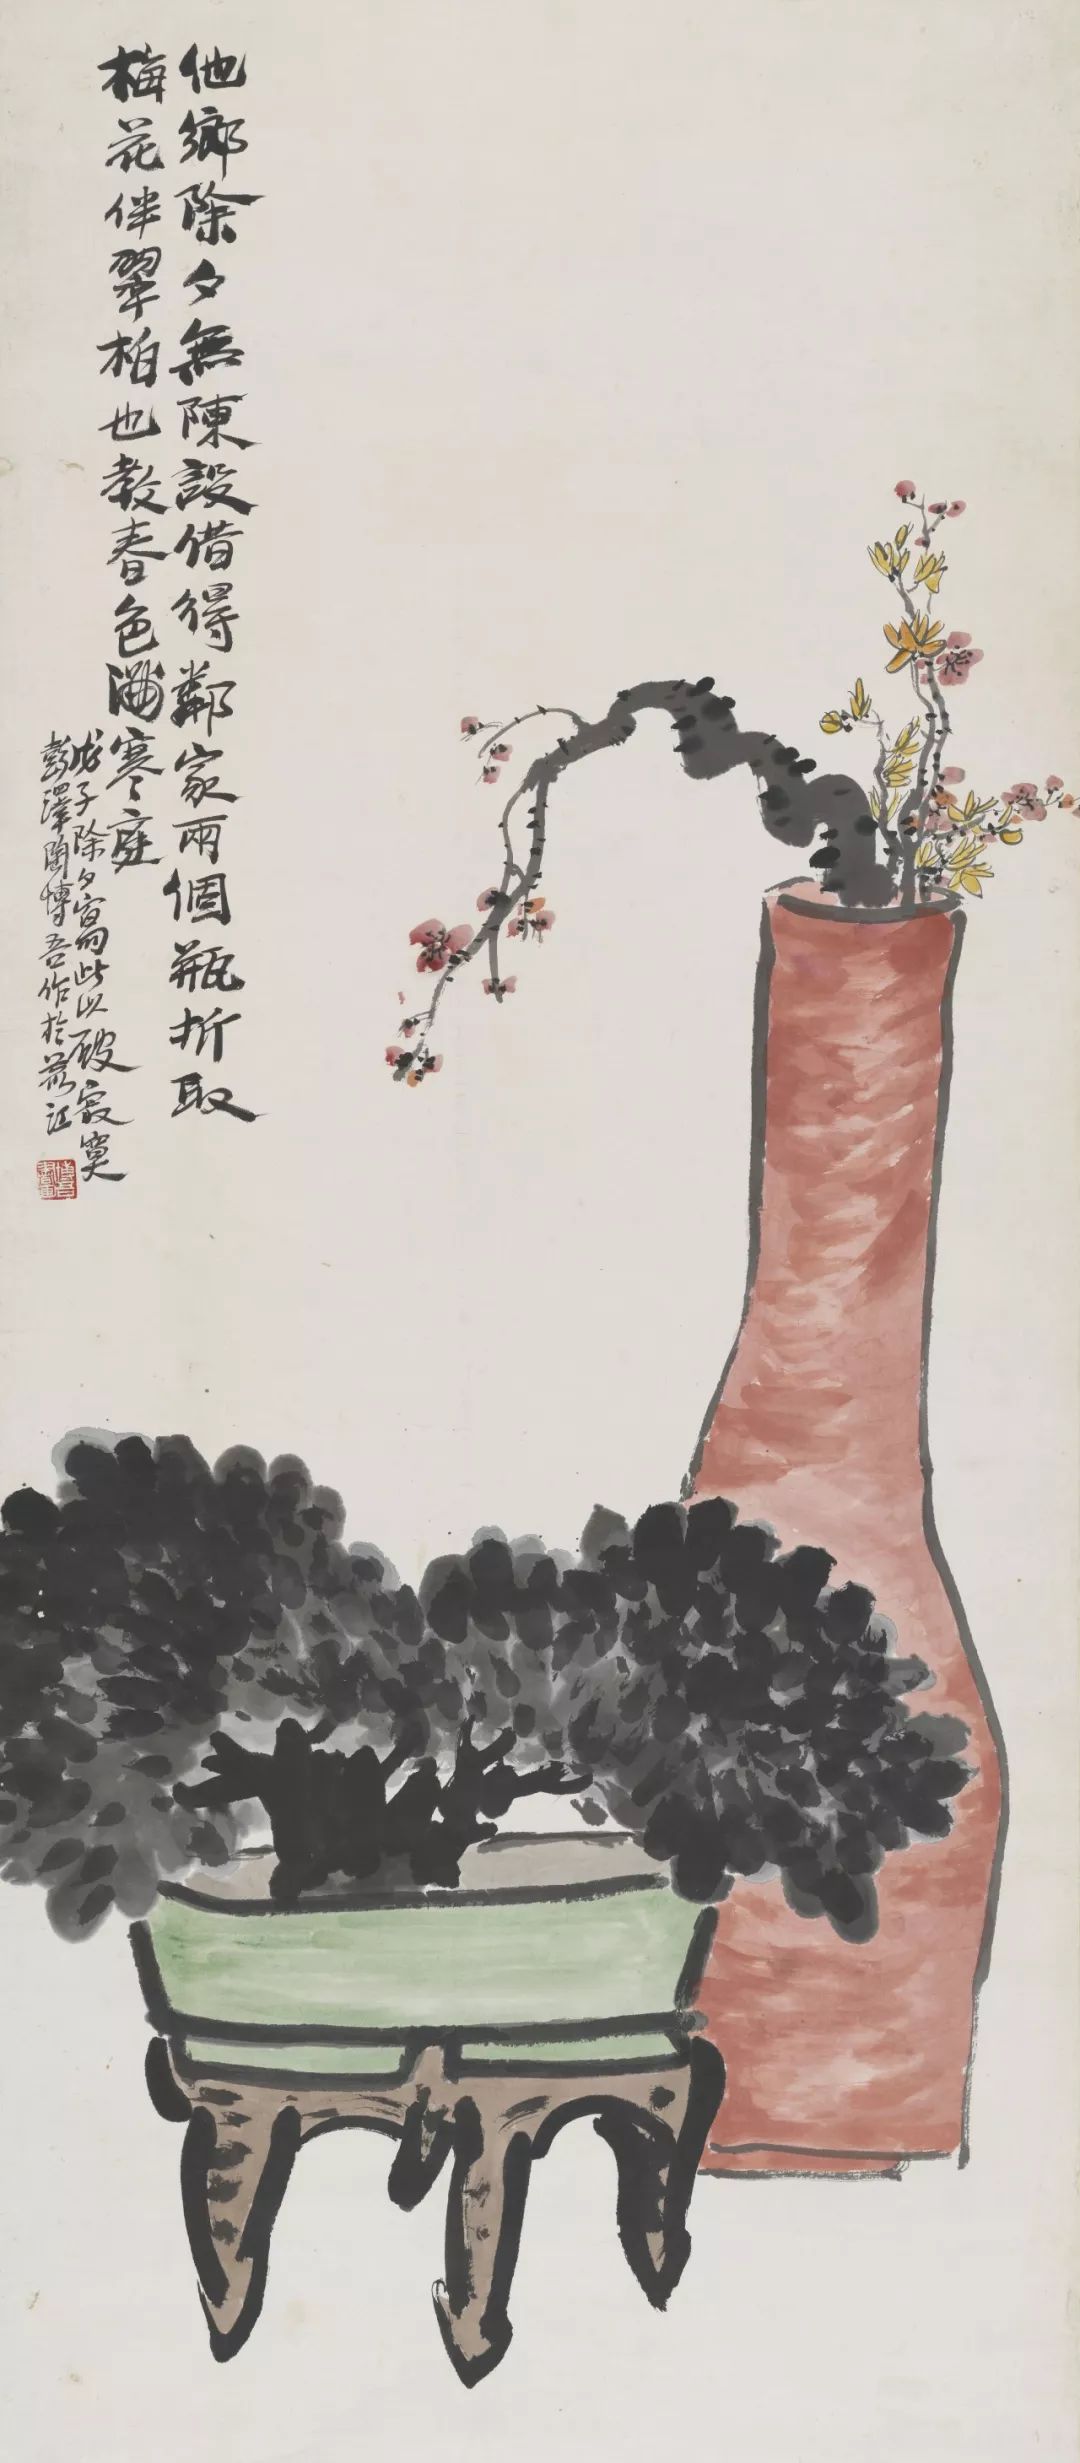 他鄉除夕無陳設借得鄰家兩個瓶折取
梅花伴翠柏也教春色滿寒庭
戊子除夕寫此以破寂寞
彭澤陶博吾作於荔江
博吾書畫